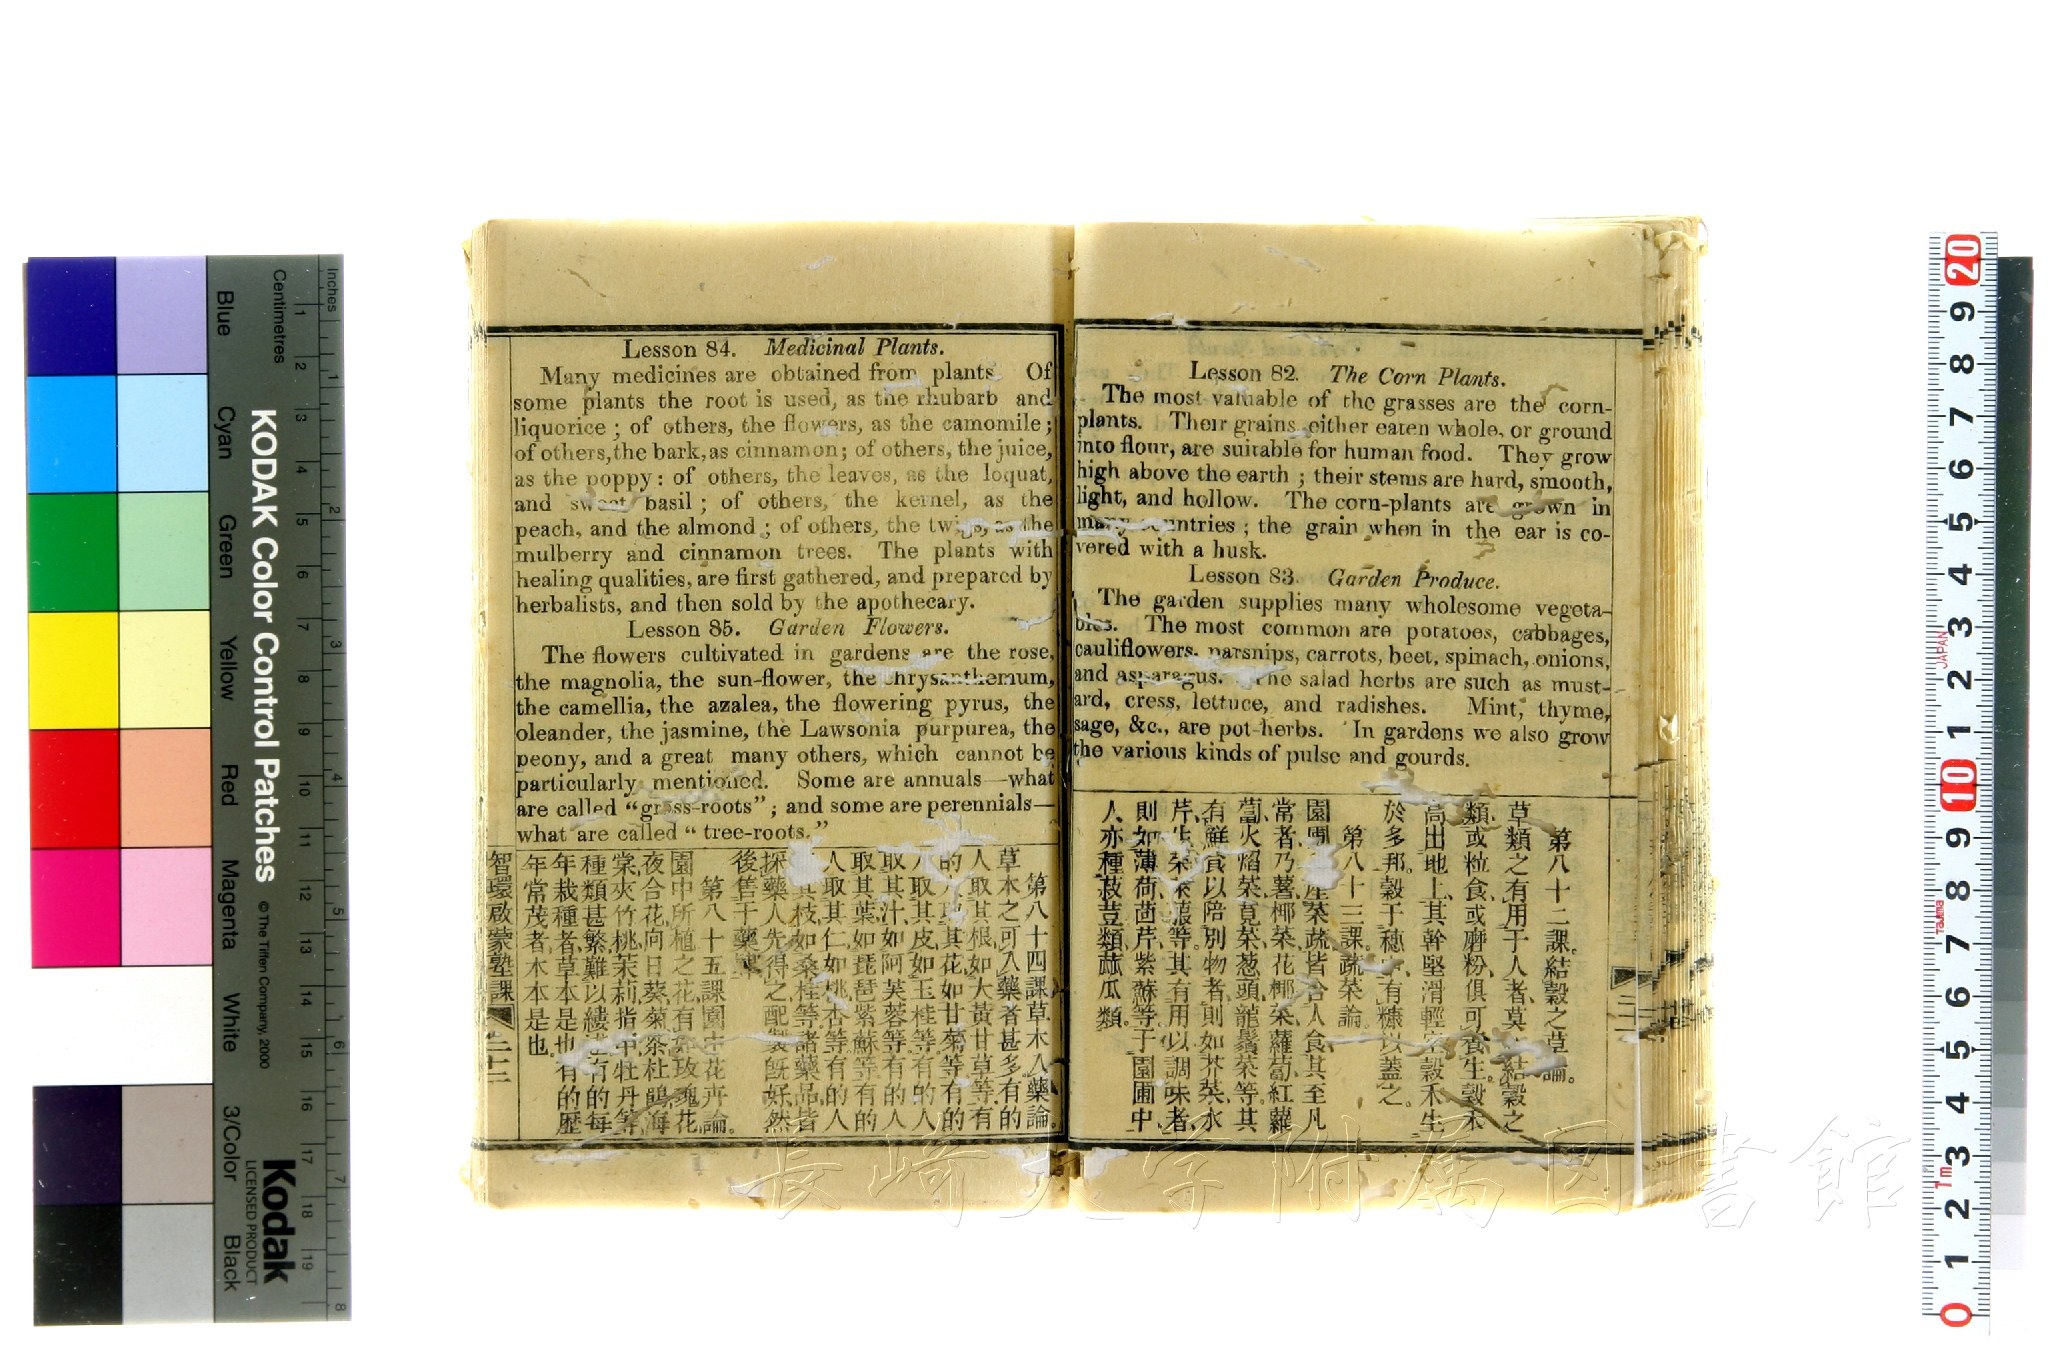 Lesson 84. Medicinal Plants.
Many medicines are obtained from plants Of
some plants the root is used, as the rhubarb and
liquorice ; of others, the flowers, as the camomile ;
of others, the bark, as cinnamon; of others, the juice,
as the poppy : of others, the leaves, as the loquat,
and sweet basil ; of others, the kernel, as the
peach, and the almond ; of others, the twigs, as the
mulberry and cinnamon trees. The plants with
healing qualities, are first gathered, and prepared by
herbalists, and then sold by the apothecary.
Lesson 85. Garden Flowers.
The flowers cultivated in gardens are the rose,
the magnolia, the sun-flower, the chrysanthemum,
the camellia, the azalea, the flowering pyrus, the
oleander, the jasmine, the Lawsonia purpurea, the
peony, and a great many others, which cannot be
particularly mentioned. Some are annuals—what
are called “grass-roots” ; and some are perennials—
what are called “ tree-roots.”
第八十四課草木入藥論。
草木之可入藥者甚多、有的
人取其根、如大黃甘草等、有
的人取其花、如甘菊等、有的
人取其皮、如玉桂等、有的人
取其汁、如阿芙蓉等、有的人
取其葉、如琵琶紫蘇等、有的
人取其仁、如桃杏等、有的人
取其枝、如桑桂等、諸藥品皆
採藥人先得之、配製旣好、然
後售于藥
第八十五課園中花卉論。
園中所植之花、有如玫瑰花
夜合花、向日葵、菊、茶、杜鵑、海
棠、夾竹桃、茉莉、指甲、牡丹等、
種類甚繁、難以縷 有的每
年栽種者、草本是也、有的歷
年常茂者、木本是也。
智環啟蒙塾課 二十三
Lesson 82. The Corn Plants.
The most valuable of the grasses are the corn-
plants. Their grains either eaten whole, or ground
into flour, are suitable for human food. They grow
high above the earth ; their stems are hard, smooth,
light, and hollow. The corn-plants are grown in
many countries ; the grain when in the ear is co-
vered with a husk.
Lesson 83. Garden Produce.
The garden supplies many wholesome vegeta-
bles. The most common are potatoes, cabbages,
cauliflowers, parsnips, carrots, beet, spinach, onions,
and asparagus. The salad herbs are such as must-
ard, cress, lettuce, and radishes. Mint, thyme,
sage, &c., are pot-herbs. In gardens we also grow
the various kinds of pulse and gourds.
第八十二課。結穀之草論。
草類之有用于人者、莫 結穀之
類、或粒食、或磨粉、俱可養生。穀禾
高出地上、其幹堅滑輕空、穀禾生
於多邦。穀于穗 有糠以蓋之。
第八十三課。蔬菜論。
園圃 產菜蔬、皆合人食、其至凡
常者、乃薯、椰菜、花椰菜、蘿蔔、紅蘿
蔔、火焰菜、莧菜、葱頭、龍鬚菜等、其
有鮮食以陪別物者、則如芥菜、水
芹、生菜 等。其有用以調味者、
則如薄荷、茴芹、紫蘇等、于園圃中、
人亦種菽荳類、蓏瓜類。
KODAK Color Control Patches
© The Tiffen Company, 2000
Kodak
LICENSED PRODUCT
Inches
Centimetres
Blue
Cyan
Green
Yellow
Red
Magenta
White
3/Color
Black
1 2 3 4 5 6 7 8 9 10 11 12 13 14 15 16 17 18 19
1 2 3 4 5 6 7 8
20 9 8 7 6 5 4 3 2 1 10 9 8 7 6 5 4 3 2 1 0
JAPAN
TAJIMA
1m
長崎大学附属図書館